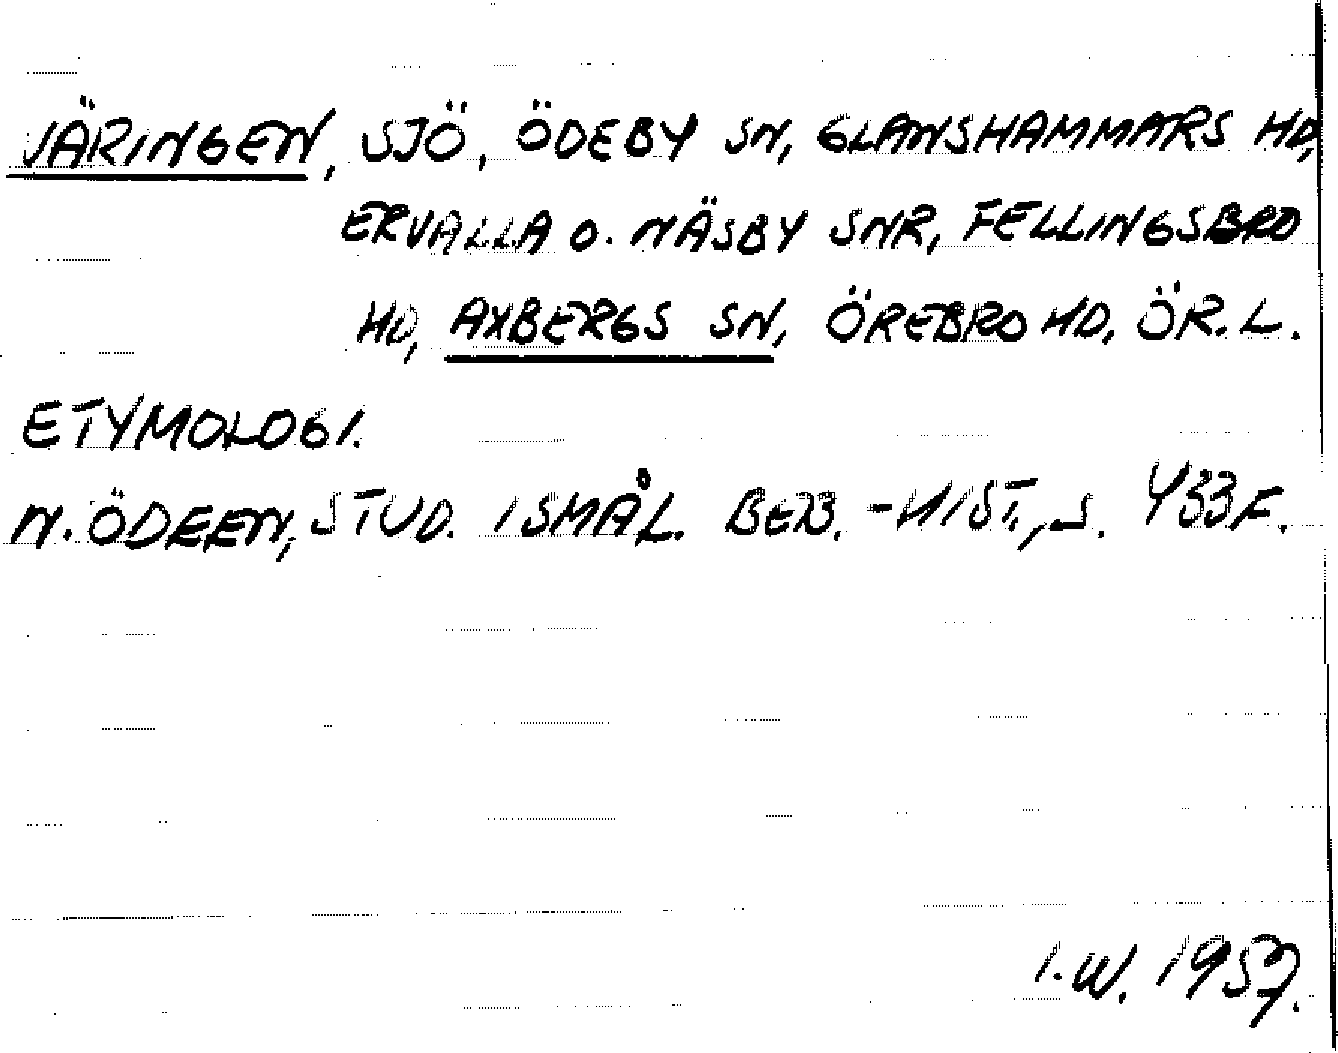 JÄRINGEN, SJÖ, ÖDEBY SN, GLANSHAMMARS HD,
ERVALLA O. NÄSBY SNR, FELLINGSBRO
HD, AXBERGS SN, ÖREBRO HD, ÖR. L.
ETYMOLOGI.
N. ÖDEEN, STUD. I SMÅL. BEB. -HIST., S. 433 F.
I. W. 1957.